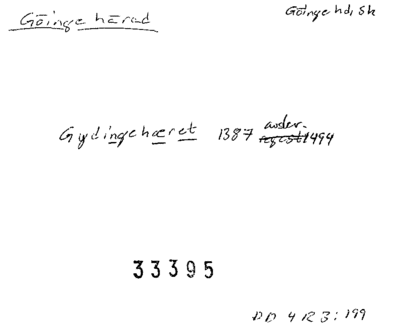 Göinge härad
Göinge hd, Sk
Gydingehæret 1387 avskr. 1494
33395
DD 4 R 3: 199